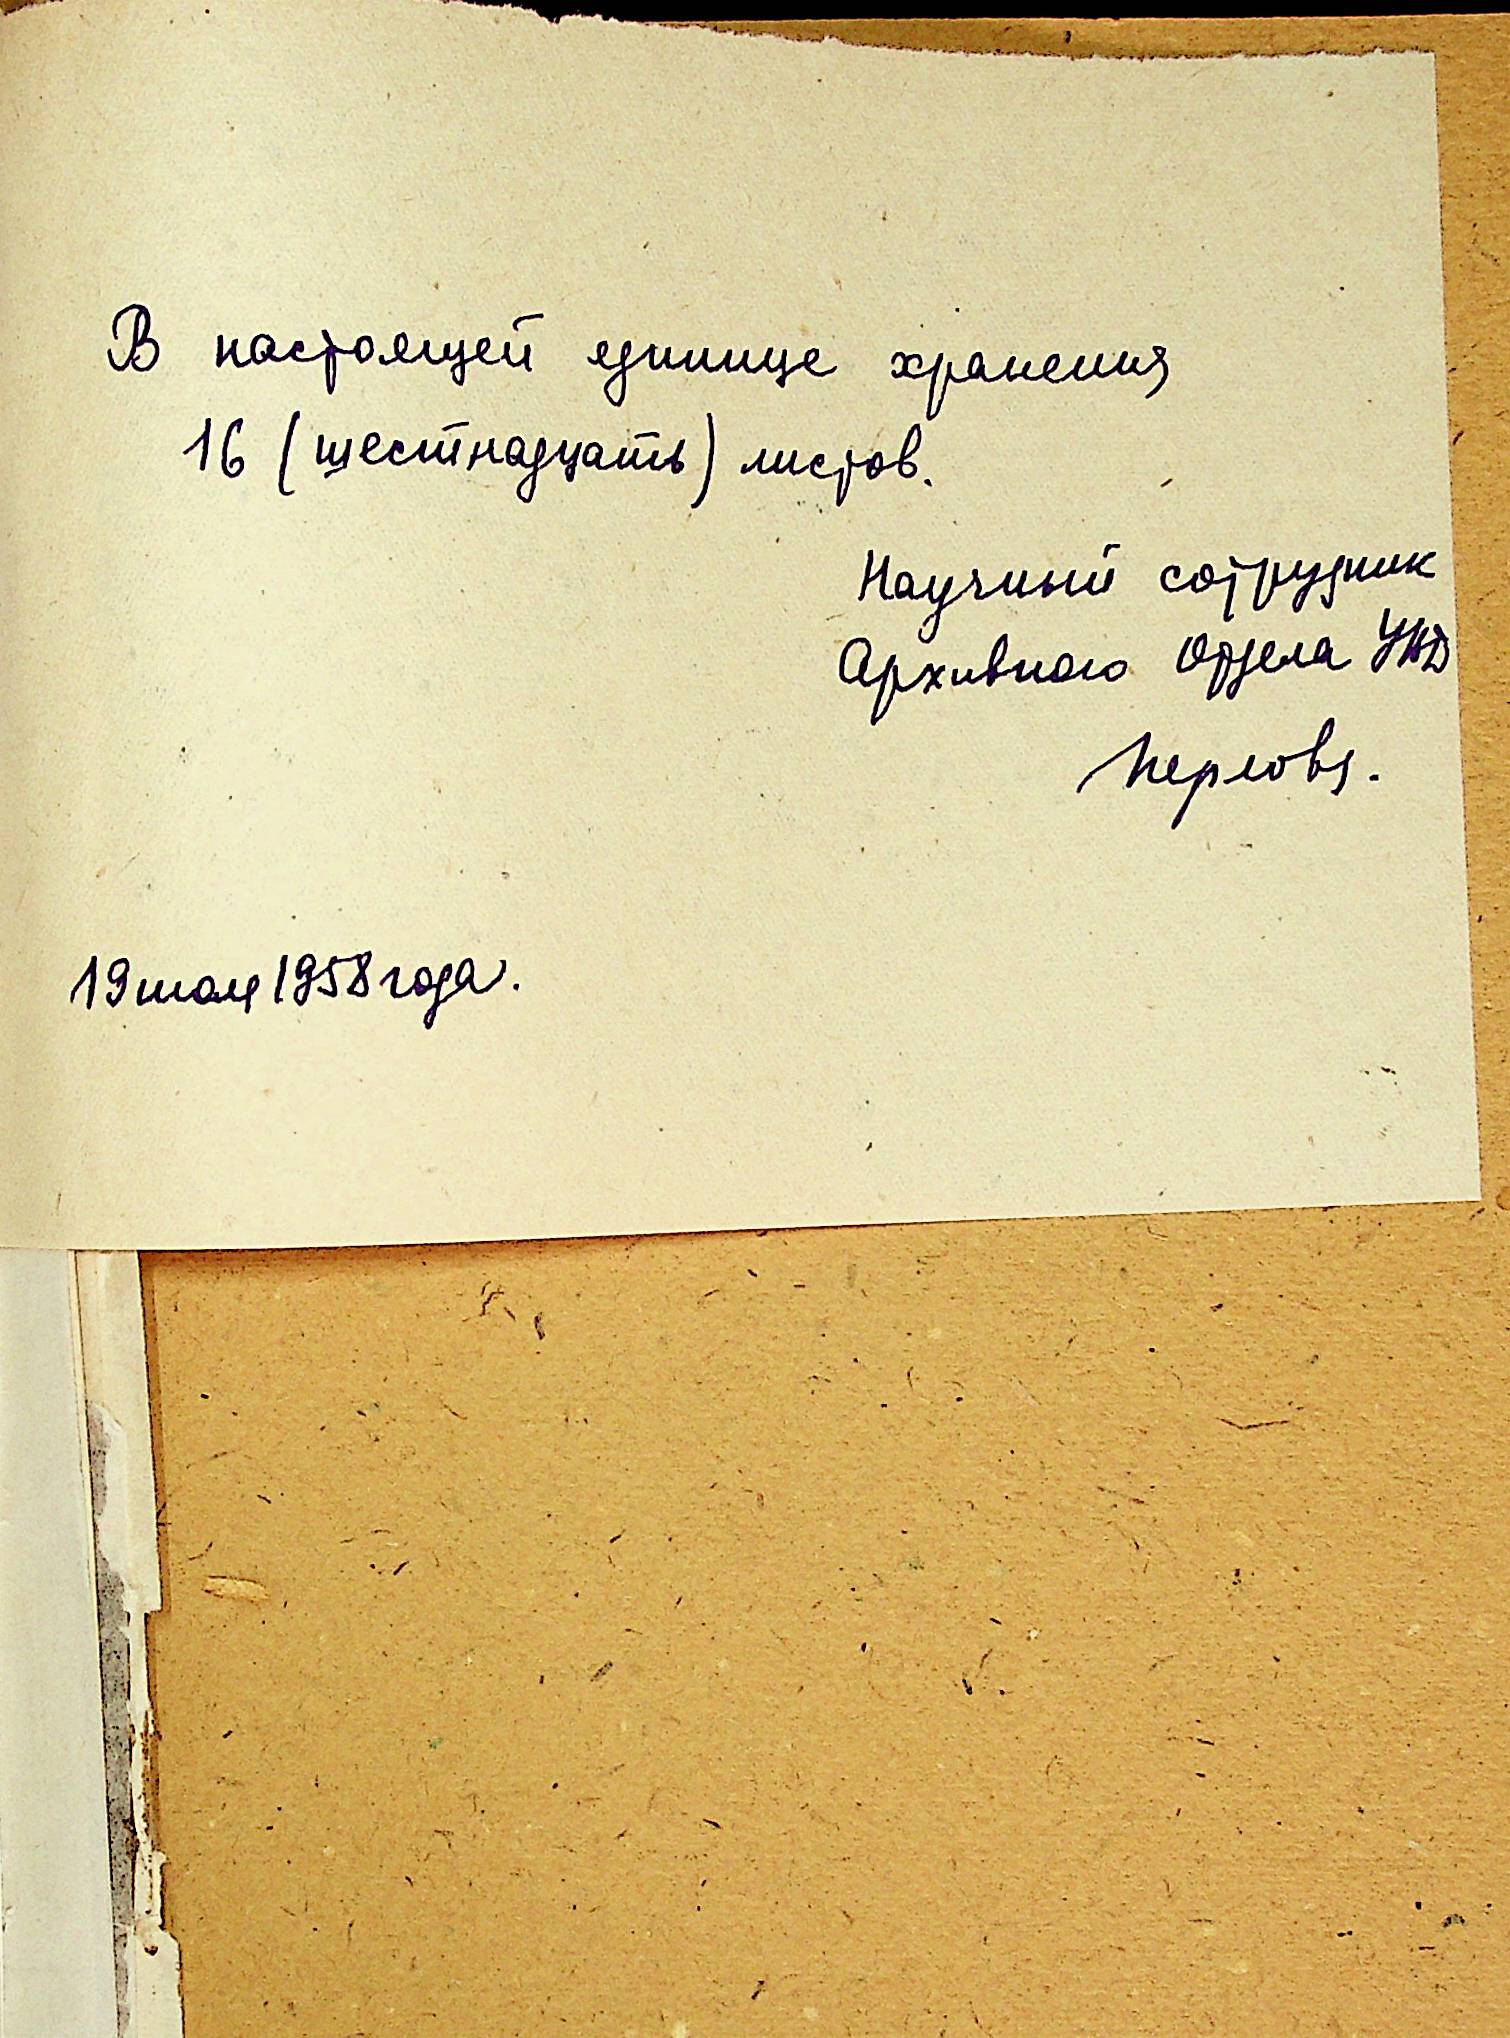 В настоящей единице хранения
16 (шестнадцать) листов.
Научный сотрудник
Архивного отдела УВД
19 июля 1958 года.